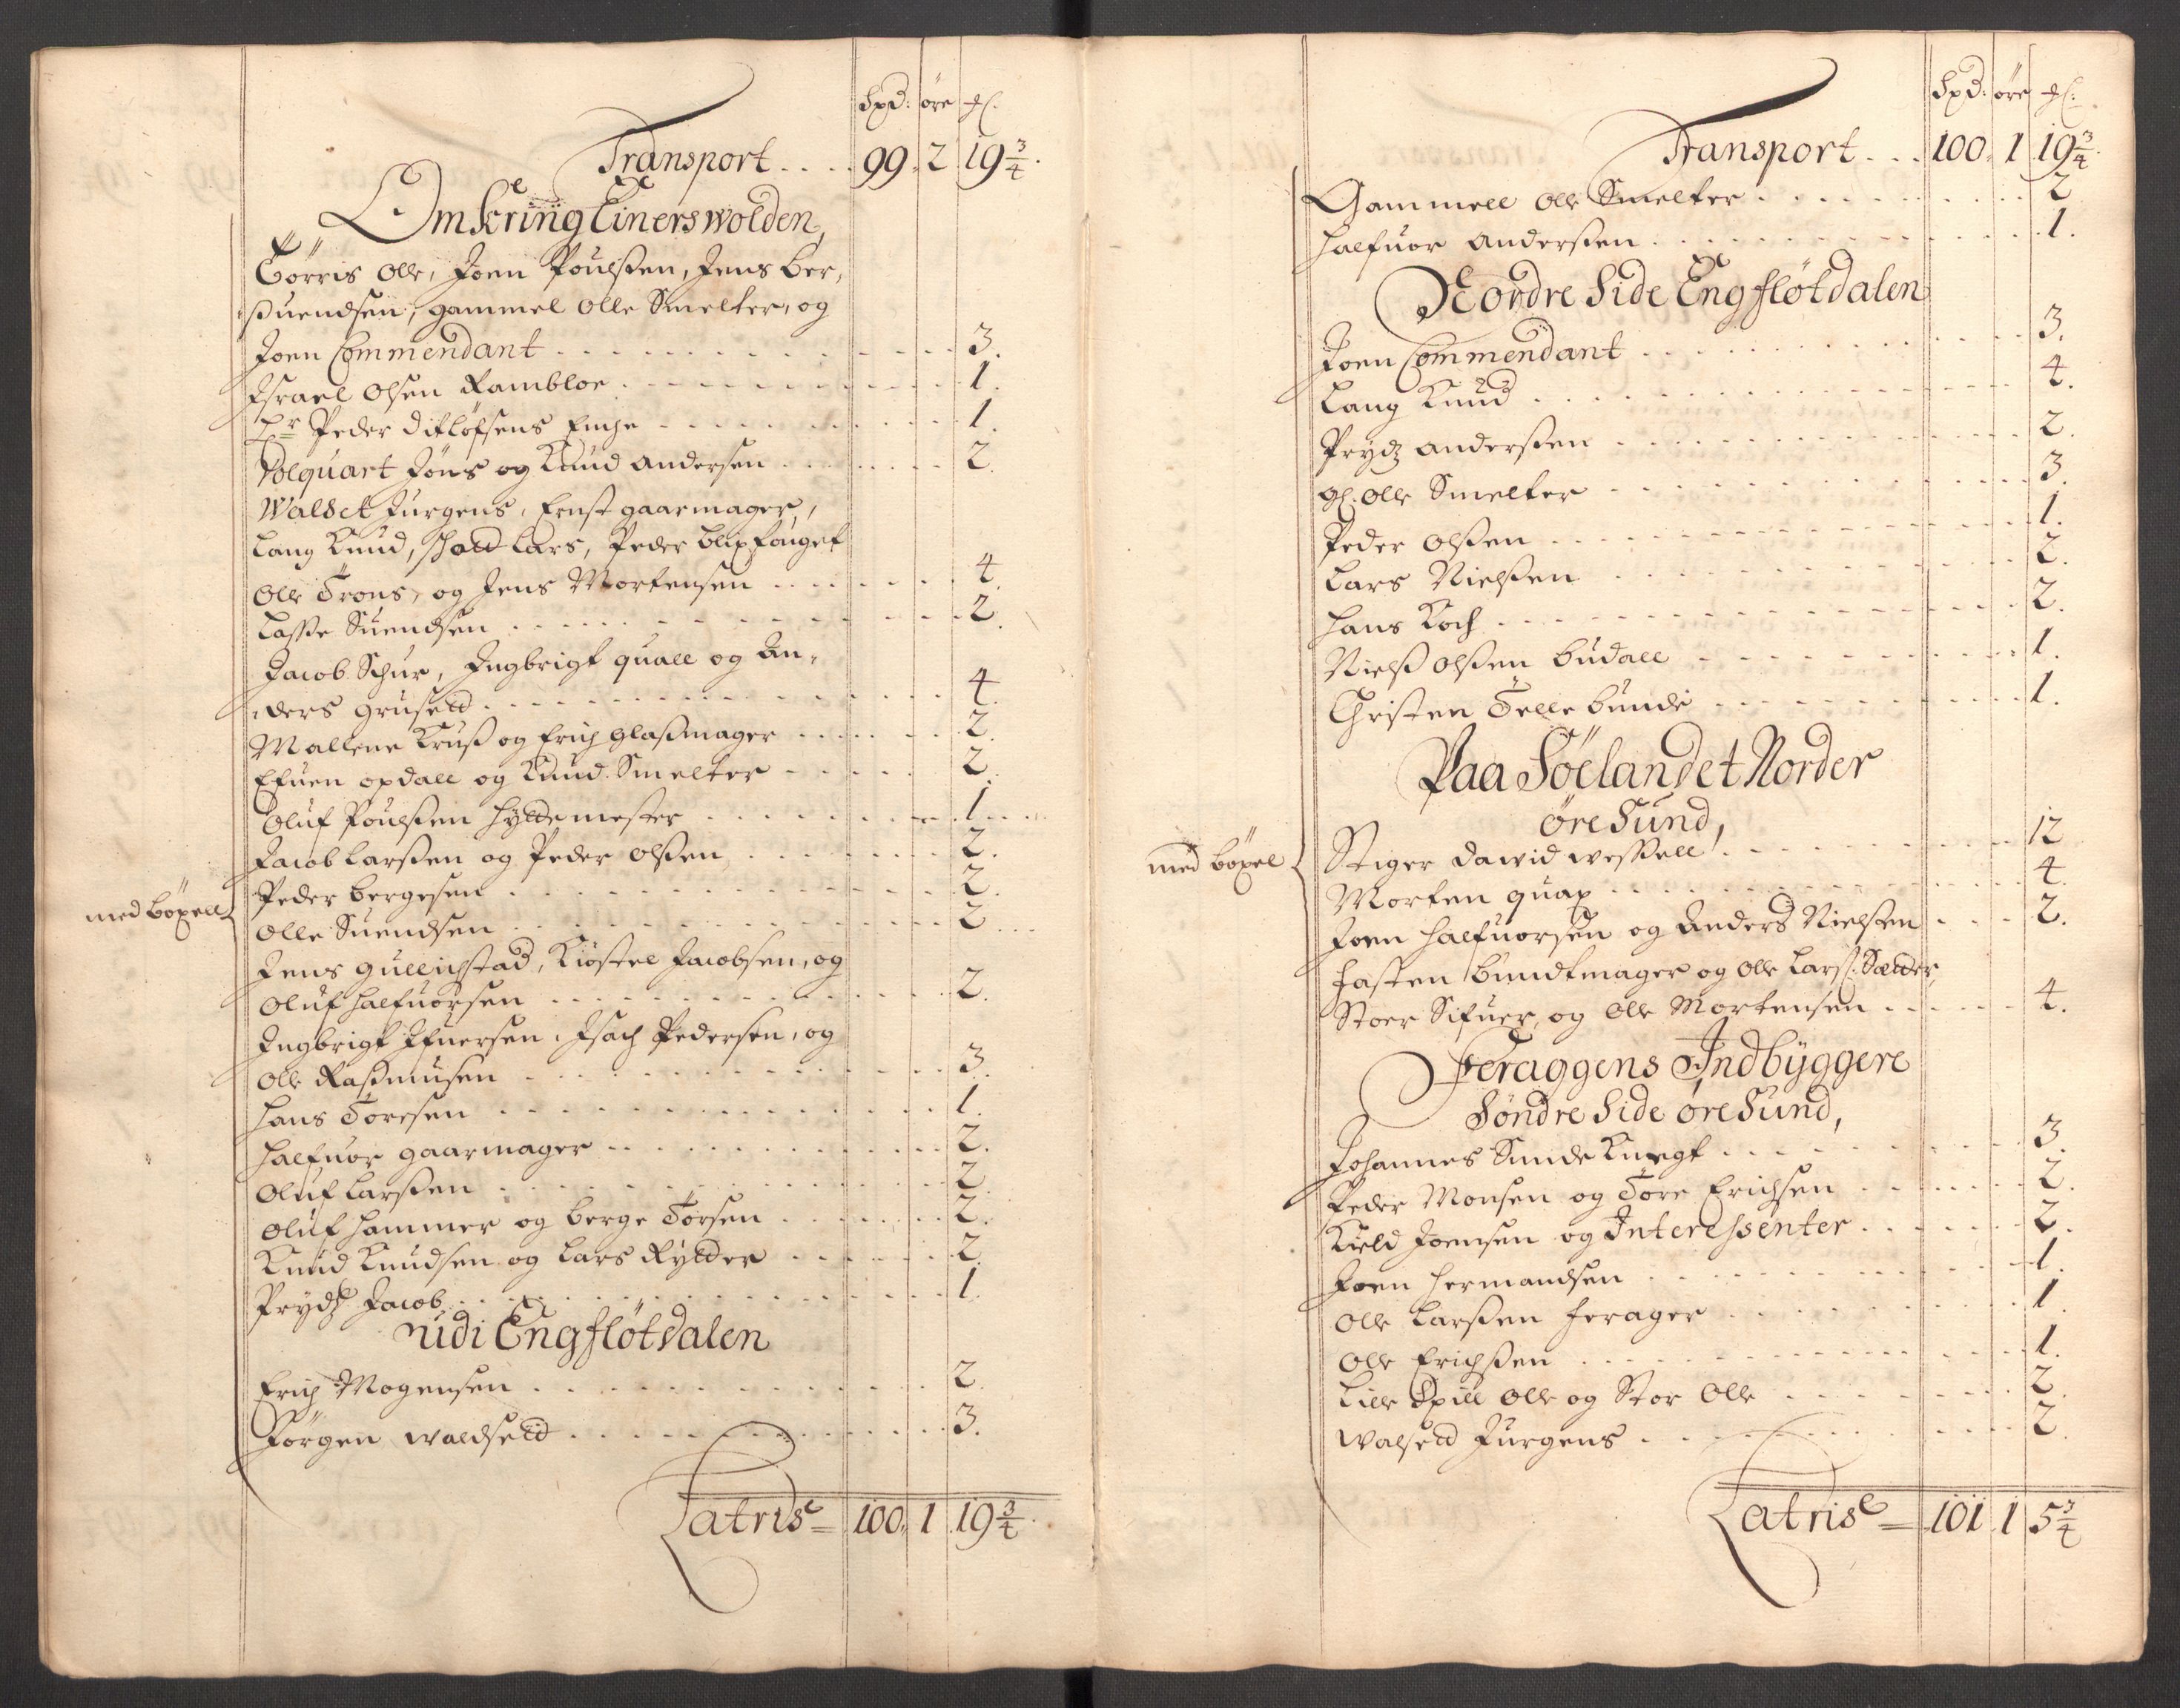 Spd: öre
Transport.... 99. 2 19 3/4.
Omkring Einerswolden,
Törris Olle, Joen Poulssen, Jens Ber,
suendsen, gammel Olle Smelter, og
Joen Commendant . . . 3.
Israel Olsen Rambloe . . . 1.
Hr Peder Ditlöfsens Enche . . . 1.
Volquart Jöns og Knud Andersen . . . 2.
Waldset Jurgens, Ernst gaarmager,
Lang Knud, Lars, Peder
Olle Trons, og Jens Mortensen . . . 4.
Lasse Suendsen . . . 2.
Jacob Schur, Ingbrigt quall og An,
ders Grusett . . . 4.
Mallene Kruss og Erich glassmager . . . 2.
Efuen opdall og Knud Smelter . . . 2.
Oluf Poulssen Hyttemester . . . 1.
Jacob Larssen og Peder Olssen . . . 2.
Peder Bergesen . . . 2.
med böxell
Olle Suendsen . . . 2.
Jens Gullichstad, Kiöstel Jacobsen, og
Oluf Halfuorsen . . . 2.
Ingbrigt Ifuersen, Isach Pedersen, og
Olle Rassmusen . . . 3.
Hans Toresen . . . 1.
Halfuor gaarmager . . . 2.
Oluf Larssen . . . 2.
Oluf Hammer og Berge Torsen . . . 2.
Knud Knudsen og Lars Rytter . . . 2.
Prydz Jacob . . . 1.
udi Engflötdalen
Erich Mogensen . . . 2.
Jörgen Waldsett . . . 3.
Latris = 100. 1 19 3/4.
Spd: öre
Transport... 100. 1 19 3/4.
Gammell Olle Smelter . . . 2
Halfuor Anderssen . . . 1.
Nordre Side Engflötdalen
Joen Commendant . . . 3.
Lang Knud . . . 4.
Prydz Anderssen . . . 2.
gl. Olle Smelter . . . 3.
Peder Olssen . . . 1.
Lars Nielssen . . . 2.
Hans Koch . . . 2.
Nielss Olssen Budall . . . 1.
Christen Tellebunde . . . 1.
Paa Söelandet Norder
öre Sund,
med böxel
Stiger Dawid Wessell . . . 12
Morten quap . . . 4.
Joen Halfuorsen og Anders Nielssen . . . 2.
Fasten Bundtmager og Olle Lars: Sætter
Stoer Sifuer, og Olle Mortensen . . . 4.
Feraggens Indbÿggere
Söndre Side öre Sund,
Johannes Knegt . . . 3.
Peder Monsen og Tore Erichsen . . . 2.
Kield Joensen og Interessenter . . . 2.
Joen Hermandsen . . . 1.
Olle Larssen Ferager . . . 1.
Olle Erichssen . . . 1.
Lille Spill Olle og Stor Olle . . . 2.
Walsett Jurgens . . . 2.
Latris = 101. 1 5 3/4